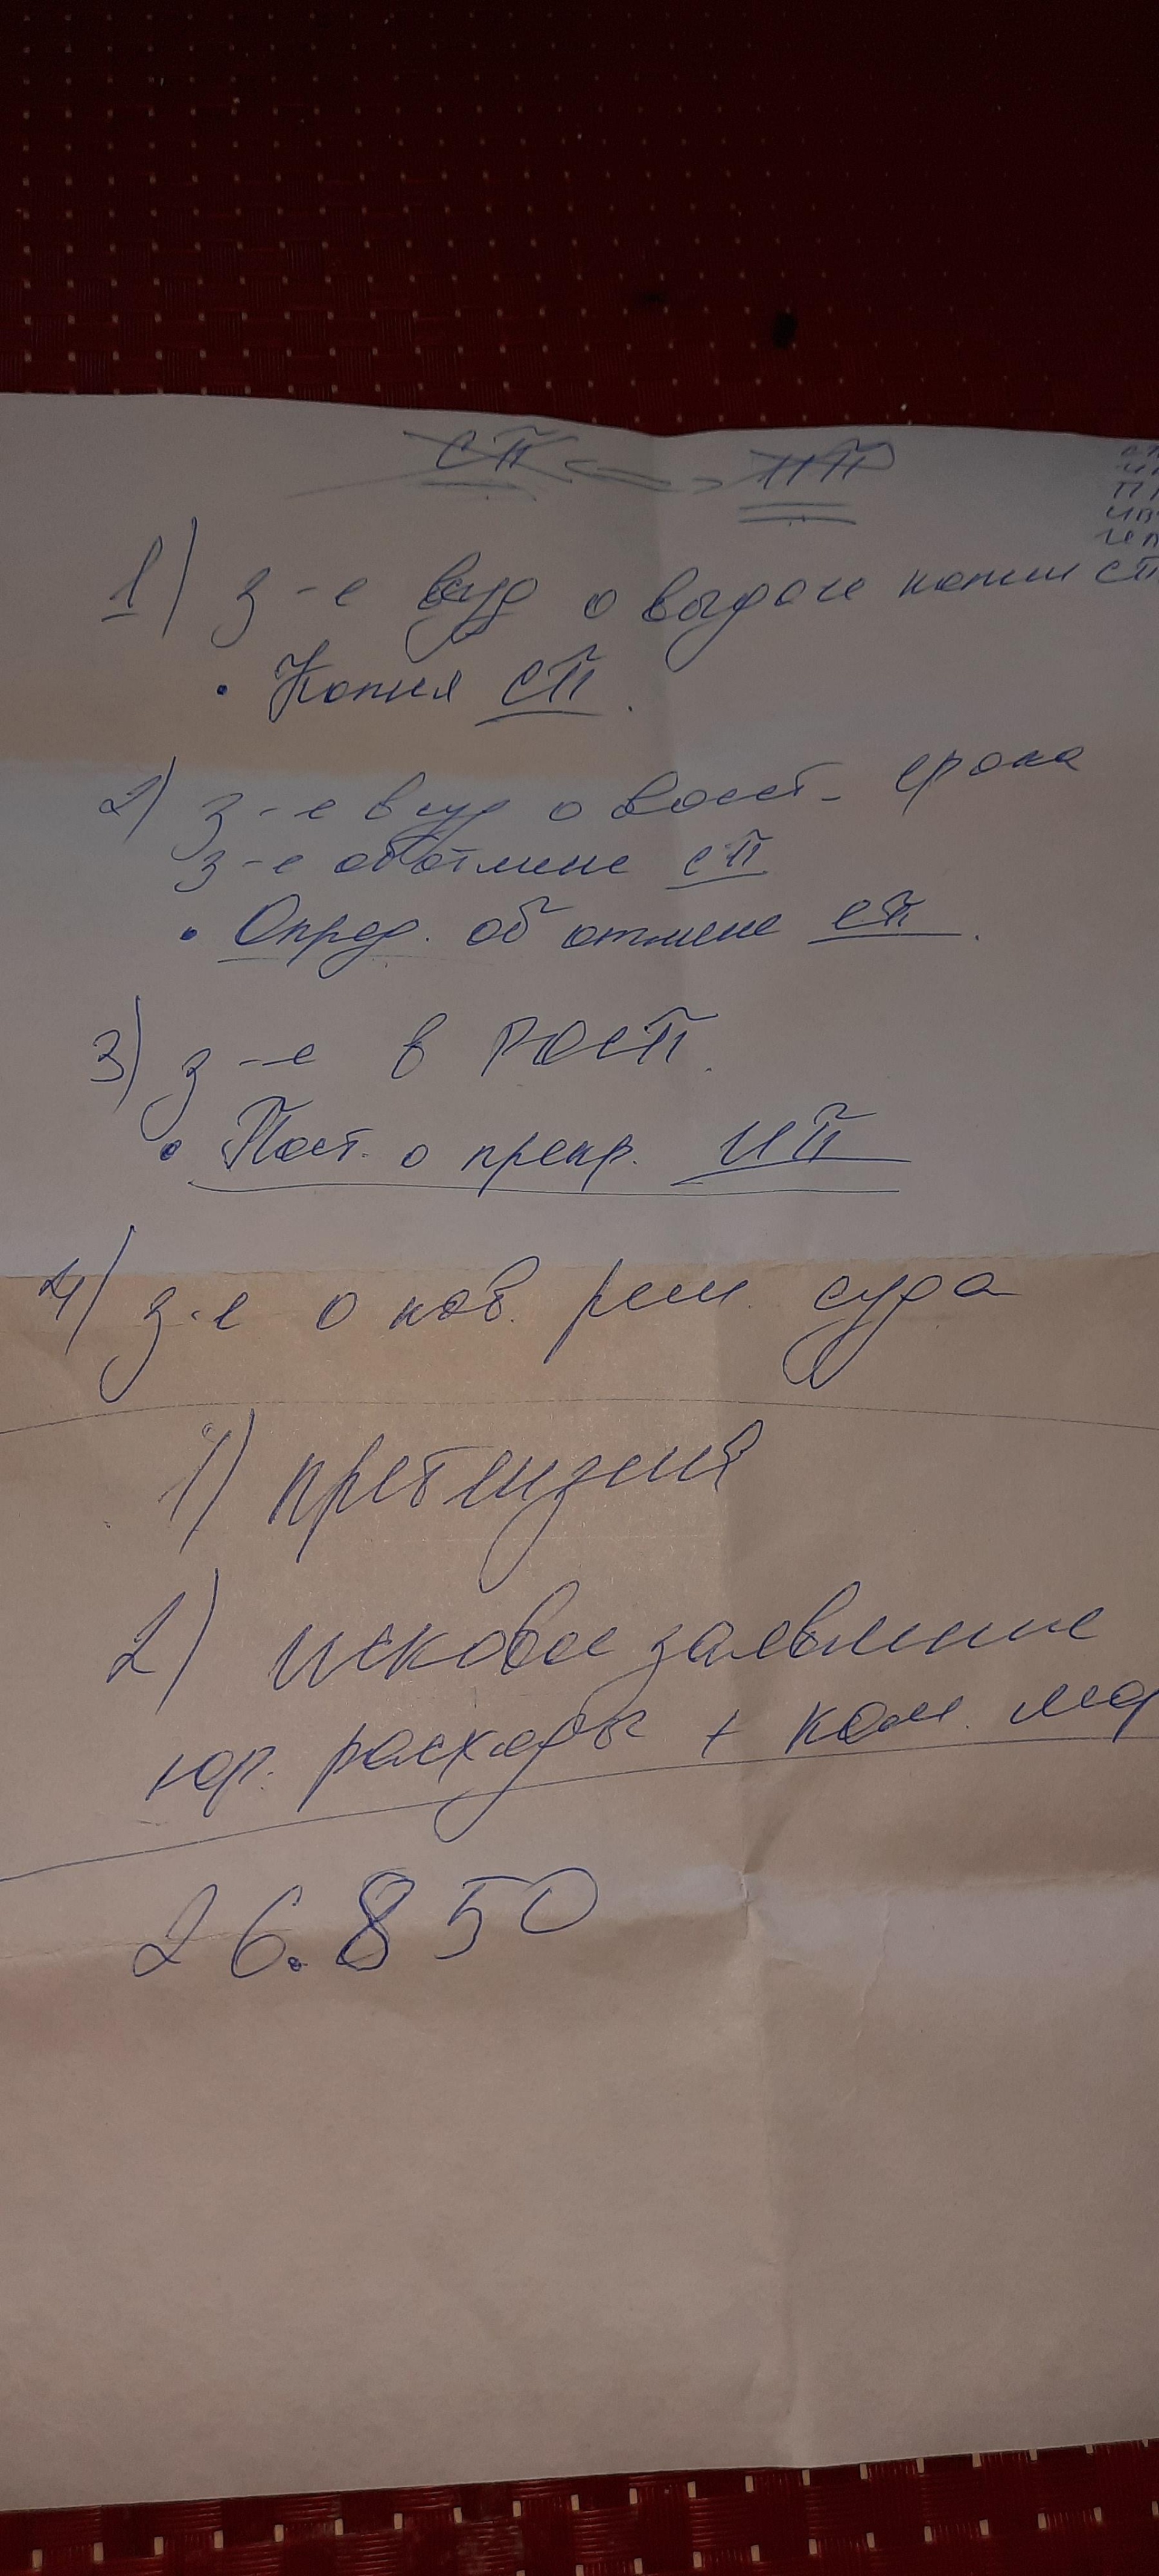 СП ИП
1) з-е в суд о выдаче копии СП
• Копия СП.
2) з-е в суд о восст. срока
з-е об отмене СП
• Опред. об отмене СП.
3) з-е в РОСП.
• Пост. о прекр. ИП
4) з-е о пов. реш. суда
1) претензия
2) исковое заявление
юр. расходы + ком. мор
26.850